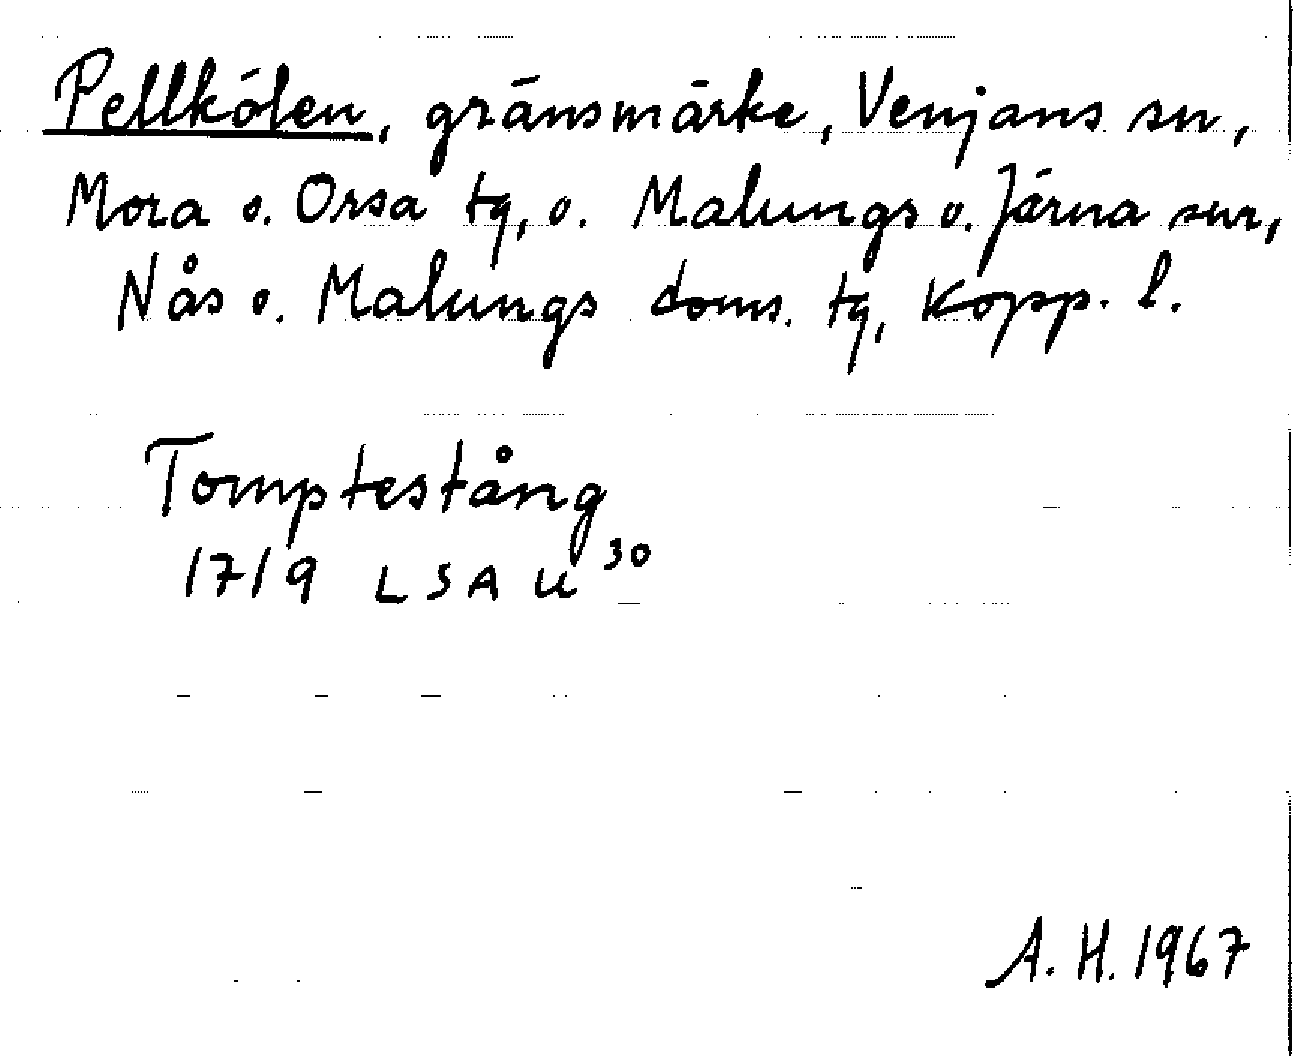 Pellkölen, gränsmärke, Venjans sn,
Mora o. Orsa tg, o. Malungs o. Järna snr,
Nås o. Malungs doms. tg, Kopp. l.
Tomptestång
1719 LSA U 30
A. H. 1967